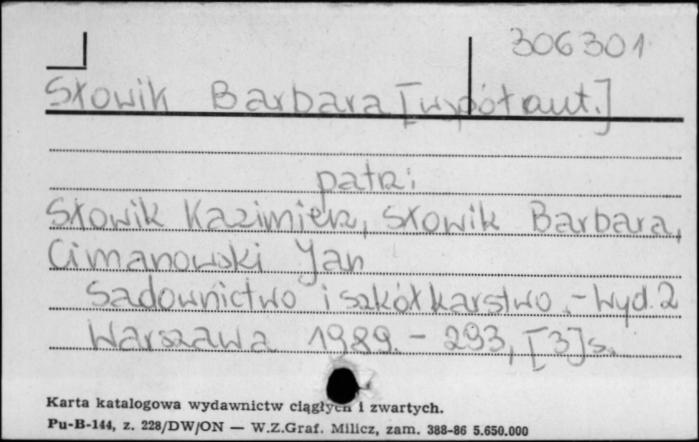 306301
Słowik Barbara [współaut.]
patrz:
Słowik Kazimierz, Słowik Barbara,
Cimanowski Jan
Sadownictwo i szkółkarstwo.- Wyd. 2
Warszawa 1989. - 293, [3] s.
Karta katalogowa wydawnictw ciągłych i zwartych.
Pu-B-144, z. 228/DW/ON — W.Z.Graf. Milicz, zam. 388-86 5.650.000